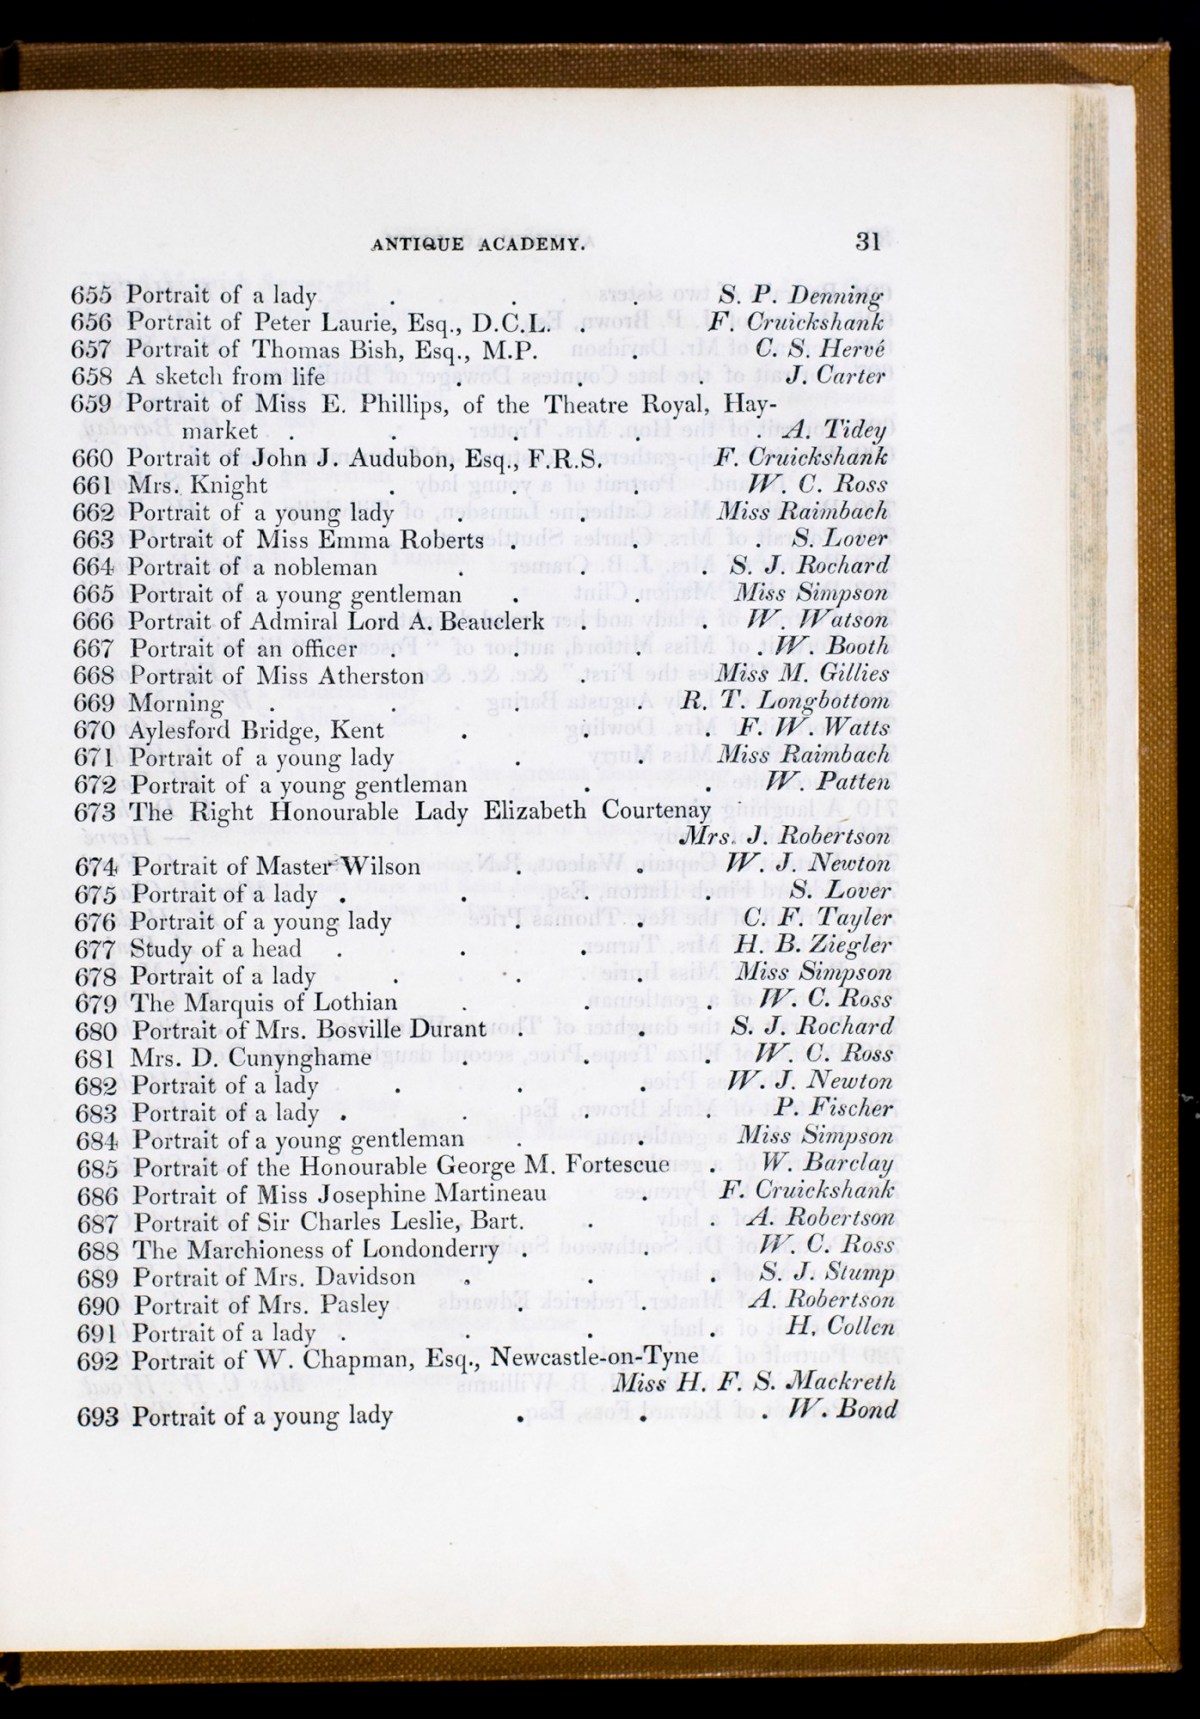 ANTIQUE ACADEMY. 31
655 Portrait of a lady . . . S. P. Denning
656 Portrait of Peter Laurie, Esq., D.C.L. . F. Cruickshank
657 Portrait of Thomas Bish, Esq., M.P. . C. S. Hervé
658 A sketch from life . . . J. Carter
659 Portrait of Miss E. Phillips, of the Theatre Royal, Hay-
market . . . . . A. Tidey
660 Portrait of John J. Audubon, Esq., F.R.S. F. Cruickshank
661 Mrs. Knight . . . W. C. Ross
662 Portrait of a young lady . . Miss Raimbach
663 Portrait of Miss Emma Roberts . . . S. Lover
664 Portrait of a nobleman . . . S. J. Rochard
665 Portrait of a young gentleman . . Miss Simpson
666 Portrait of Admiral Lord A. Beauclerk . . W. Watson
667 Portrait of an officer . . . . W. Booth
668 Portrait of Miss Atherston . . Miss M. Gillies
669 Morning . . . . R. T. Longbottom
670 Aylesford Bridge, Kent . . . F. W. Watts
671 Portrait of a young lady . . Miss Raimbach
672 Portrait of a young gentleman . . W. Patten
673 The Right Honourable Lady Elizabeth Courtenay
Mrs. J. Robertson
674 Portrait of Master Wilson . . W. J. Newton
675 Portrait of a lady . . . . S. Lover
676 Portrait of a young lady . . C. F. Tayler
677 Study of a head . . . H. B. Ziegler
678 Portrait of a lady . . . Miss Simpson
679 The Marquis of Lothian . . . W. C. Ross
680 Portrait of Mrs. Bosville Durant . . S. J. Rochard
681 Mrs. D. Cunynghame . . . W. C. Ross
682 Portrait of a lady . . . W. J. Newton
683 Portrait of a lady . . . . P. Fischer
684 Portrait of a young gentleman . . Miss Simpson
685 Portrait of the Honourable George M. Fortescue . W. Barclay
686 Portrait of Miss Josephine Martineau . F. Cruickshank
687 Portrait of Sir Charles Leslie, Bart. . . A. Robertson
688 The Marchioness of Londonderry . . W. C. Ross
689 Portrait of Mrs. Davidson . . . S. J. Stump
690 Portrait of Mrs. Pasley . . A. Robertson
691 Portrait of a lady . . . . H. Collen
692 Portrait of W. Chapman, Esq., Newcastle-on-Tyne
Miss H. F. S. Mackreth
693 Portrait of a young lady . . . W. Bond